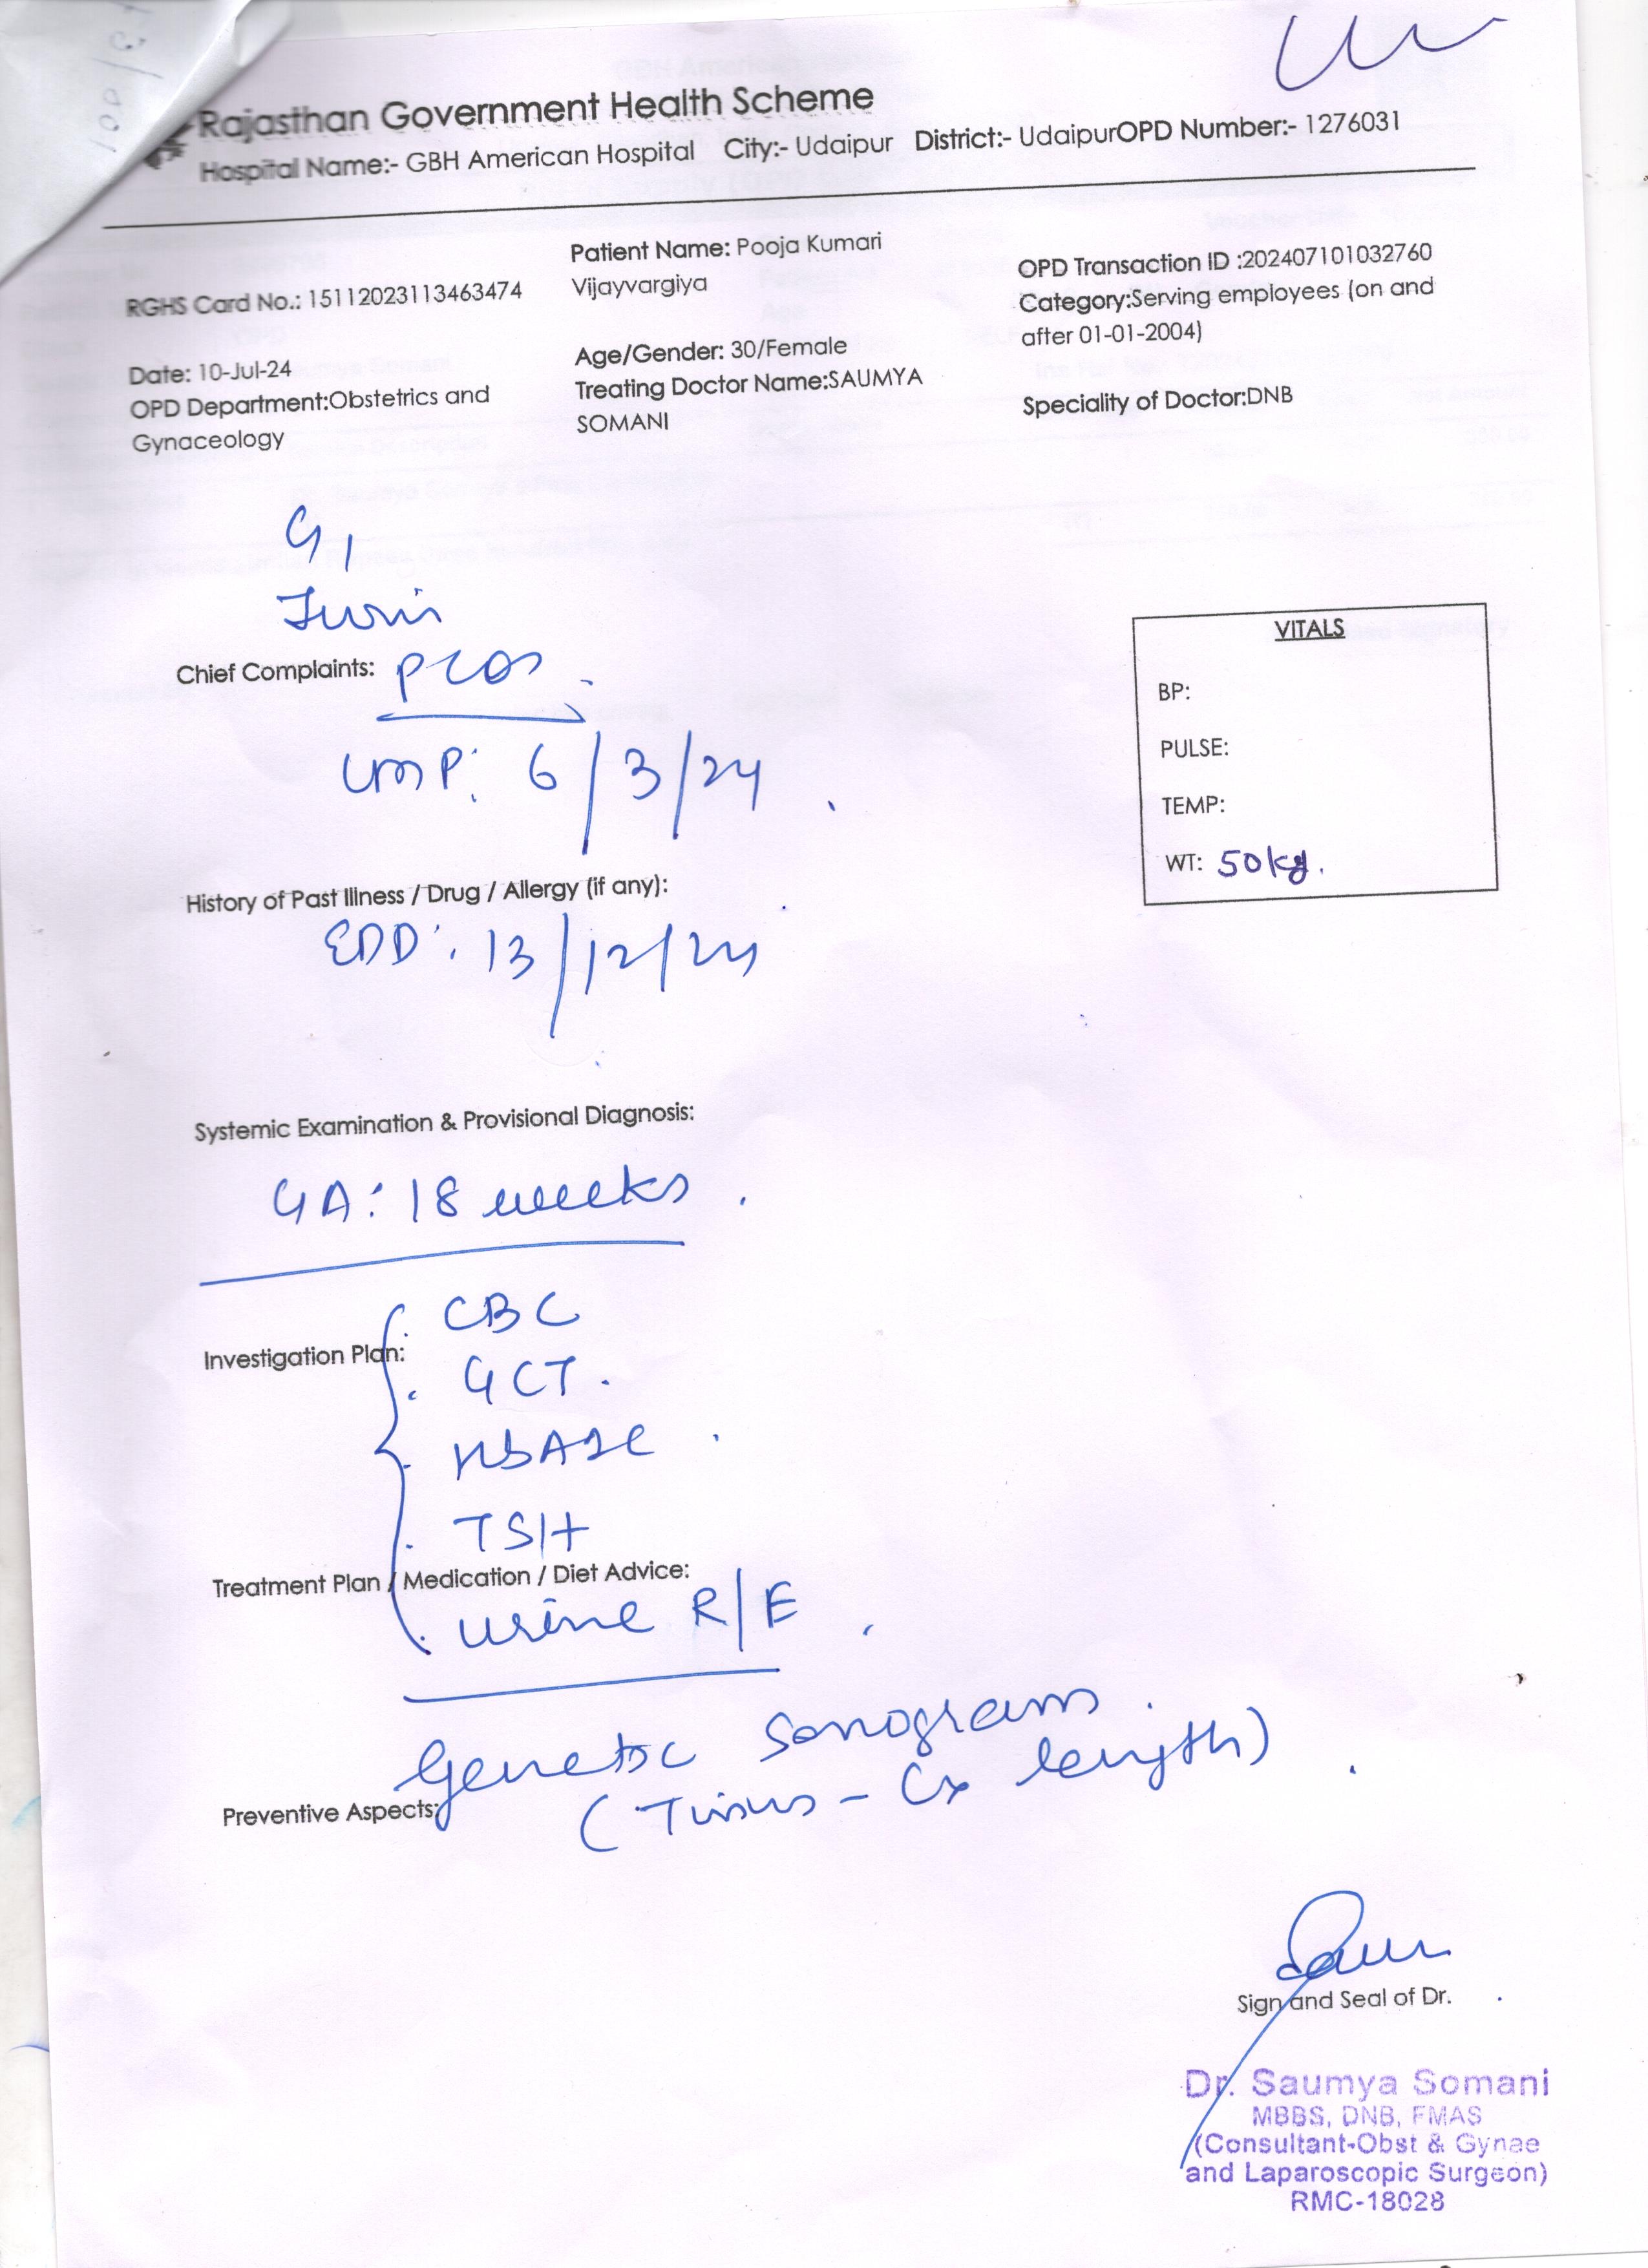 Rajasthan Government Health Scheme
Hospital Name:- GBH American Hospital City:- Udaipur District:- UdaipurOPD Number:- 1276031
RGHS Card No.: 15112023113463474
Patient Name: Pooja Kumari
Vijayvargiya
OPD Transaction ID :202407101032760
Category:Serving employees (on and
after 01-01-2004)
Date: 10-Jul-24
Age/Gender: 30/Female
OPD Department:Obstetrics and
Gynaceology
Treating Doctor Name:SAUMYA
SOMANI
Speciality of Doctor:DNB
G1
VITALS
Chief Complaints: PCOS
BP:
PULSE:
LMP: 6/3/24
TEMP:
WT: 50kg.
History of Past Illness / Drug / Allergy (if any):
EDD: 13/12/24
Systemic Examination & Provisional Diagnosis:
GA: 18 weeks
CBC
Investigation Plan:
GCT
HbA1c
TSH
Treatment Plan / Medication / Diet Advice:
urine R/E
Genetic Sonogram
(Twins - Cx length)
Preventive Aspects:
Sign and Seal of Dr.
Dr. Saumya Somani
MBBS, DNB, FMAS
(Consultant-Obst & Gynae
and Laparoscopic Surgeon)
RMC-18028